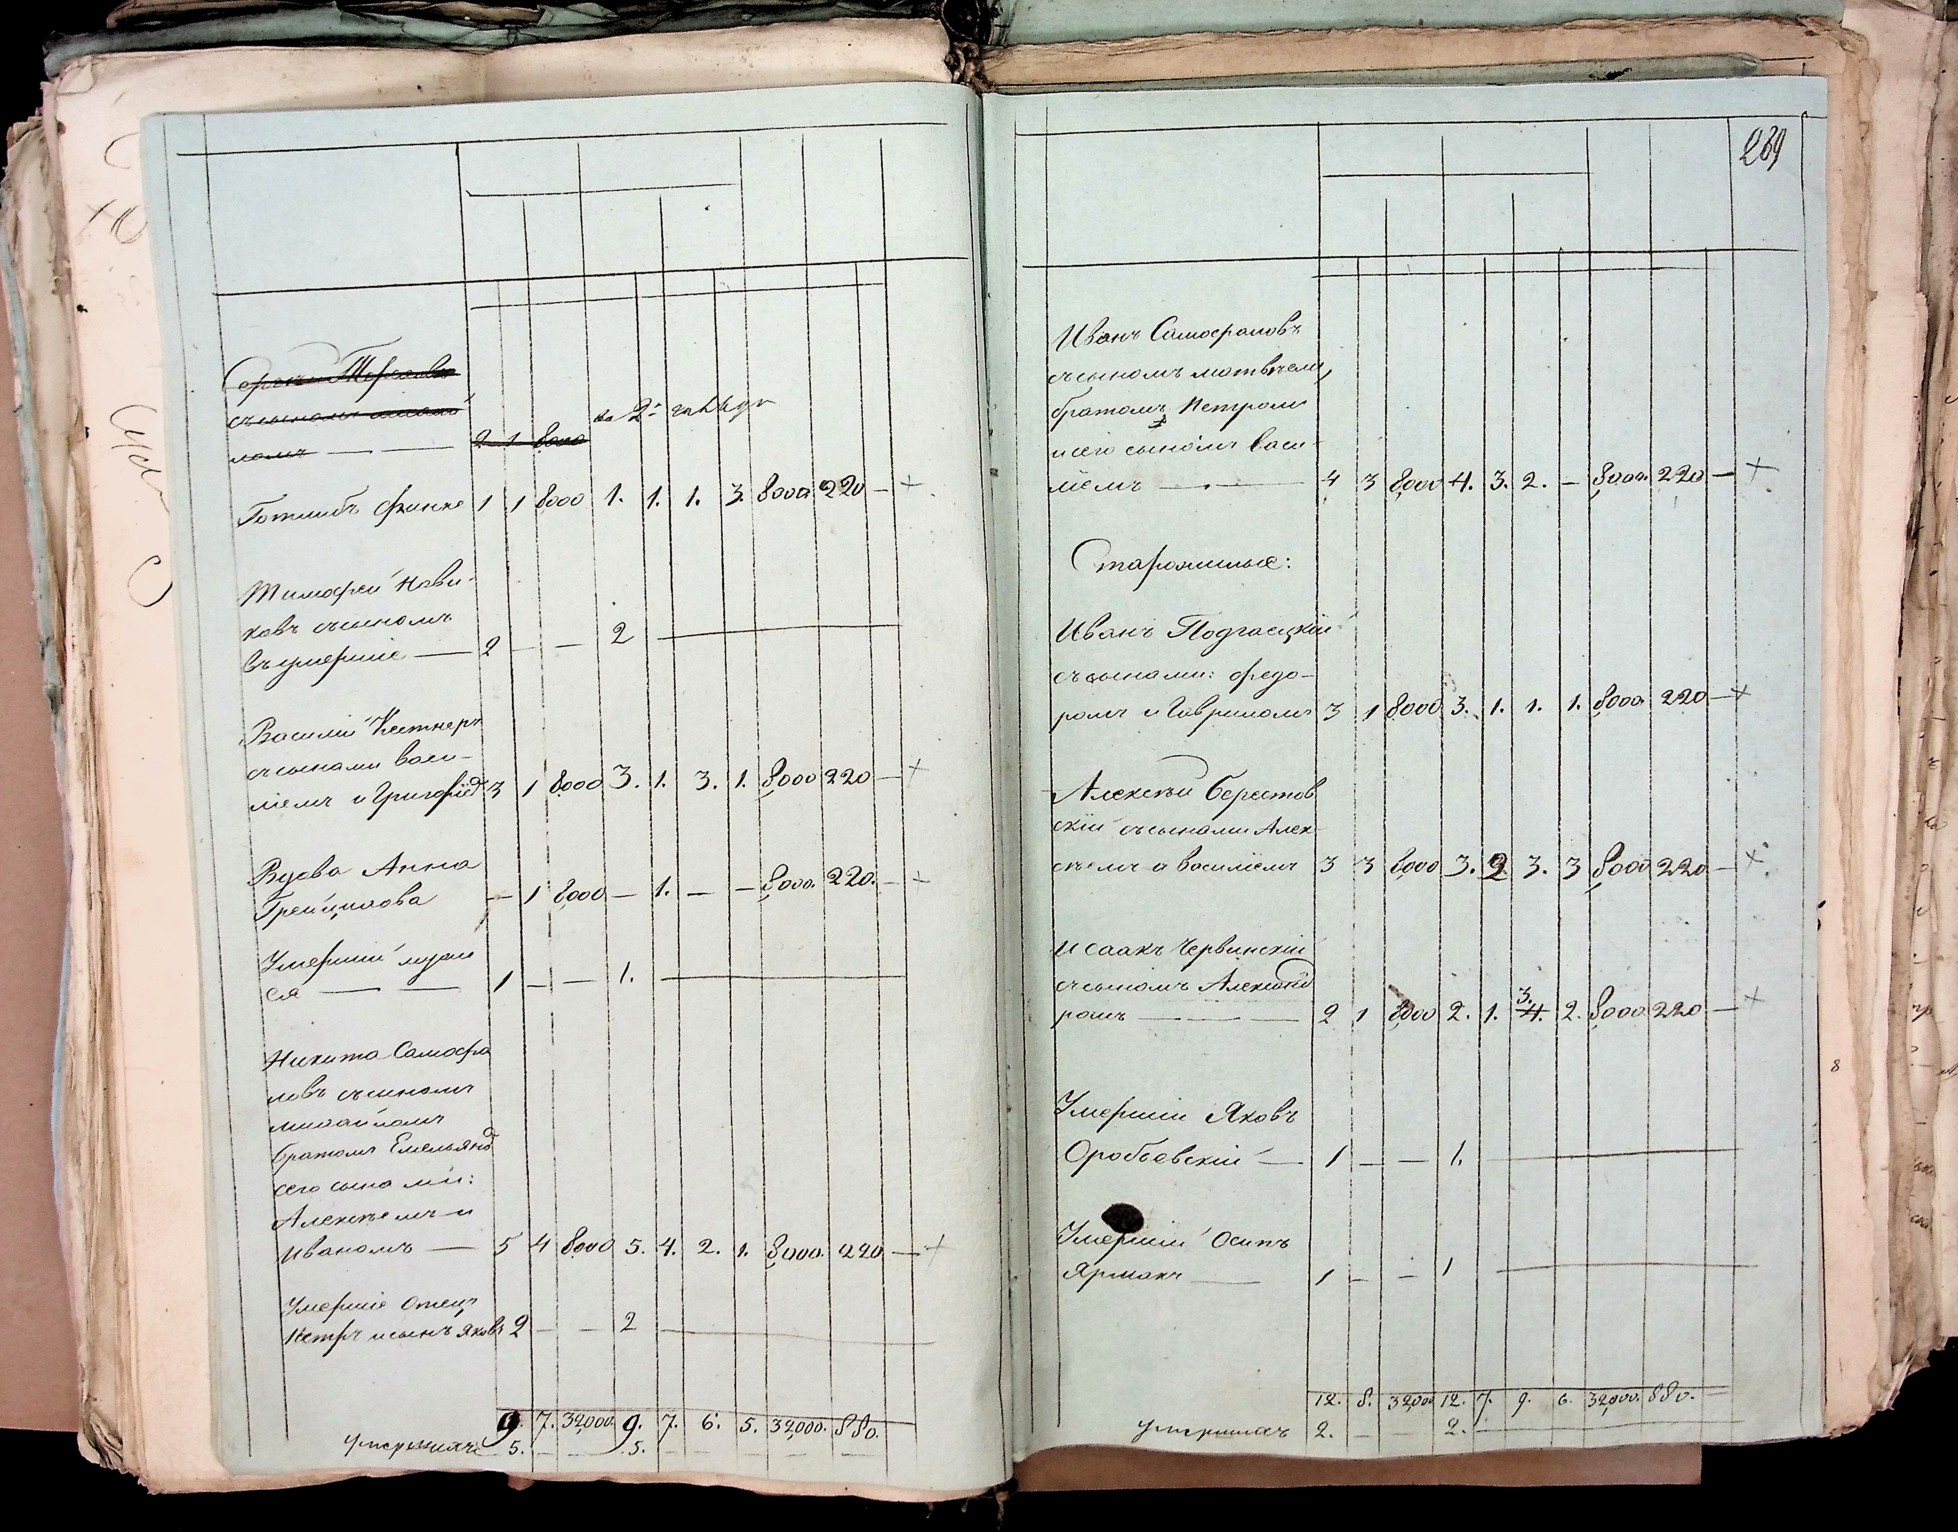 съ сыномъ
2 1 8000 во 2й
Готлибъ Финке 1 1 8000 1. 1. 1. 3. 8000 220 — +
Тимофей Нови-
ковъ съ сыномъ
въ умершіе — 2 — — 2 —
Василій Кестнеръ
съ сынами Васи-
ліемъ и Григоріе 3 1 8000 3. 1. 3. 1. 8000 220 — +
Вдова Анна
Грейцилова — 1 8000 — 1. — — 8000. 220. — +
Умершій мужъ
ея — — 1 — — 1. —
Никита Самофа
ловъ съ сыномъ
Михайломъ
братомъ Емельяно
его сынами:
Алексѣемъ и
Иваномъ — 5 4 8000 5. 4. 2. 1. 8000. 220 — +
Умершіе отецъ
Петръ и сынъ Яковъ 2 — — 2 —
9. 7. 32000. 9. 7. 6. 5. 32000. 880.
умершихъ 5. — — 5. — — — — —
269
Иванъ Самофаловъ
съ сыномъ Матвѣемъ,
братомъ Петромъ
и его сыномъ Васи-
ліемъ — — 4 3 8000 4. 3. 2. — 8000. 220 — +
Старожилые:
Иванъ Подгаецкій
съ сынами: Федо-
ромъ и Гавриломъ 3 1 8000 3. 1. 1. 1. 8000. 220 — +
Алексѣй Берестов
скій съ сынами Алек-
сѣемъ и Василіемъ 3 3 8000 3. 2 3. 3 8000 220 — +
Исаакъ Червинскій
съ сыномъ Александ
ромъ — — — 2 1 8000 2. 1. 4. 3. 2. 8000 220 — +
Умершій Яковъ
Оробьевскій — 1 — — 1. —
Умершій Осипъ
Ярмакъ — 1 — — 1 —
12. 8. 32000 12. 7. 9. 6. 32000. 880. —
умершихъ 2. — — 2. —